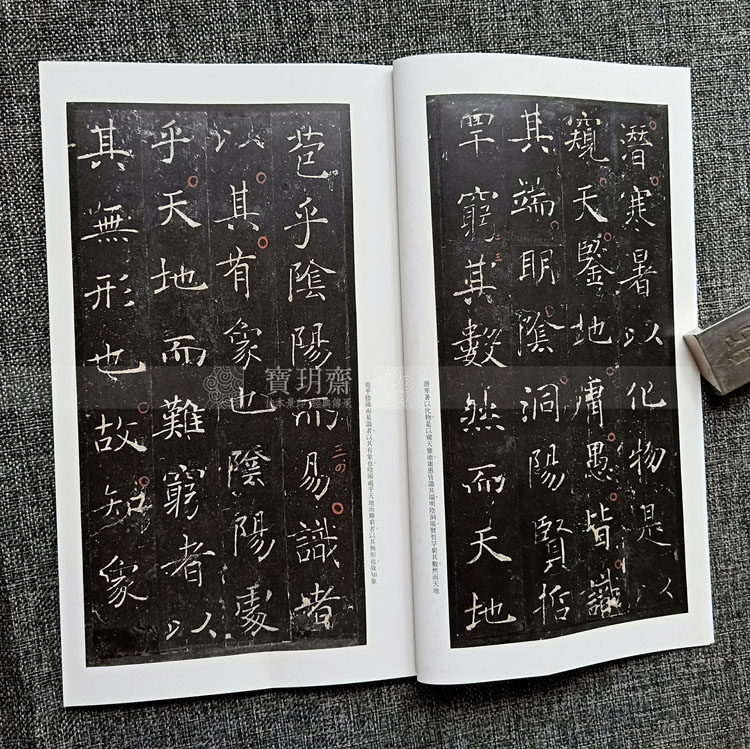 潛寒暑以化物是以
窺天鑒地庸愚皆識
其端明陰洞陽賢哲
罕窮其數然而天地
潛寒暑以化物是以窺天鑒地庸愚皆識其端明陰洞陽賢哲罕窮其數然而天地
苞乎陰陽而易識者
以其有象也陰陽處
乎天地而難窮者以
其無形也故知象
苞乎陰陽而易識者以其有象也陰陽處乎天地而難窮者以其無形也故知象
寶玥齋